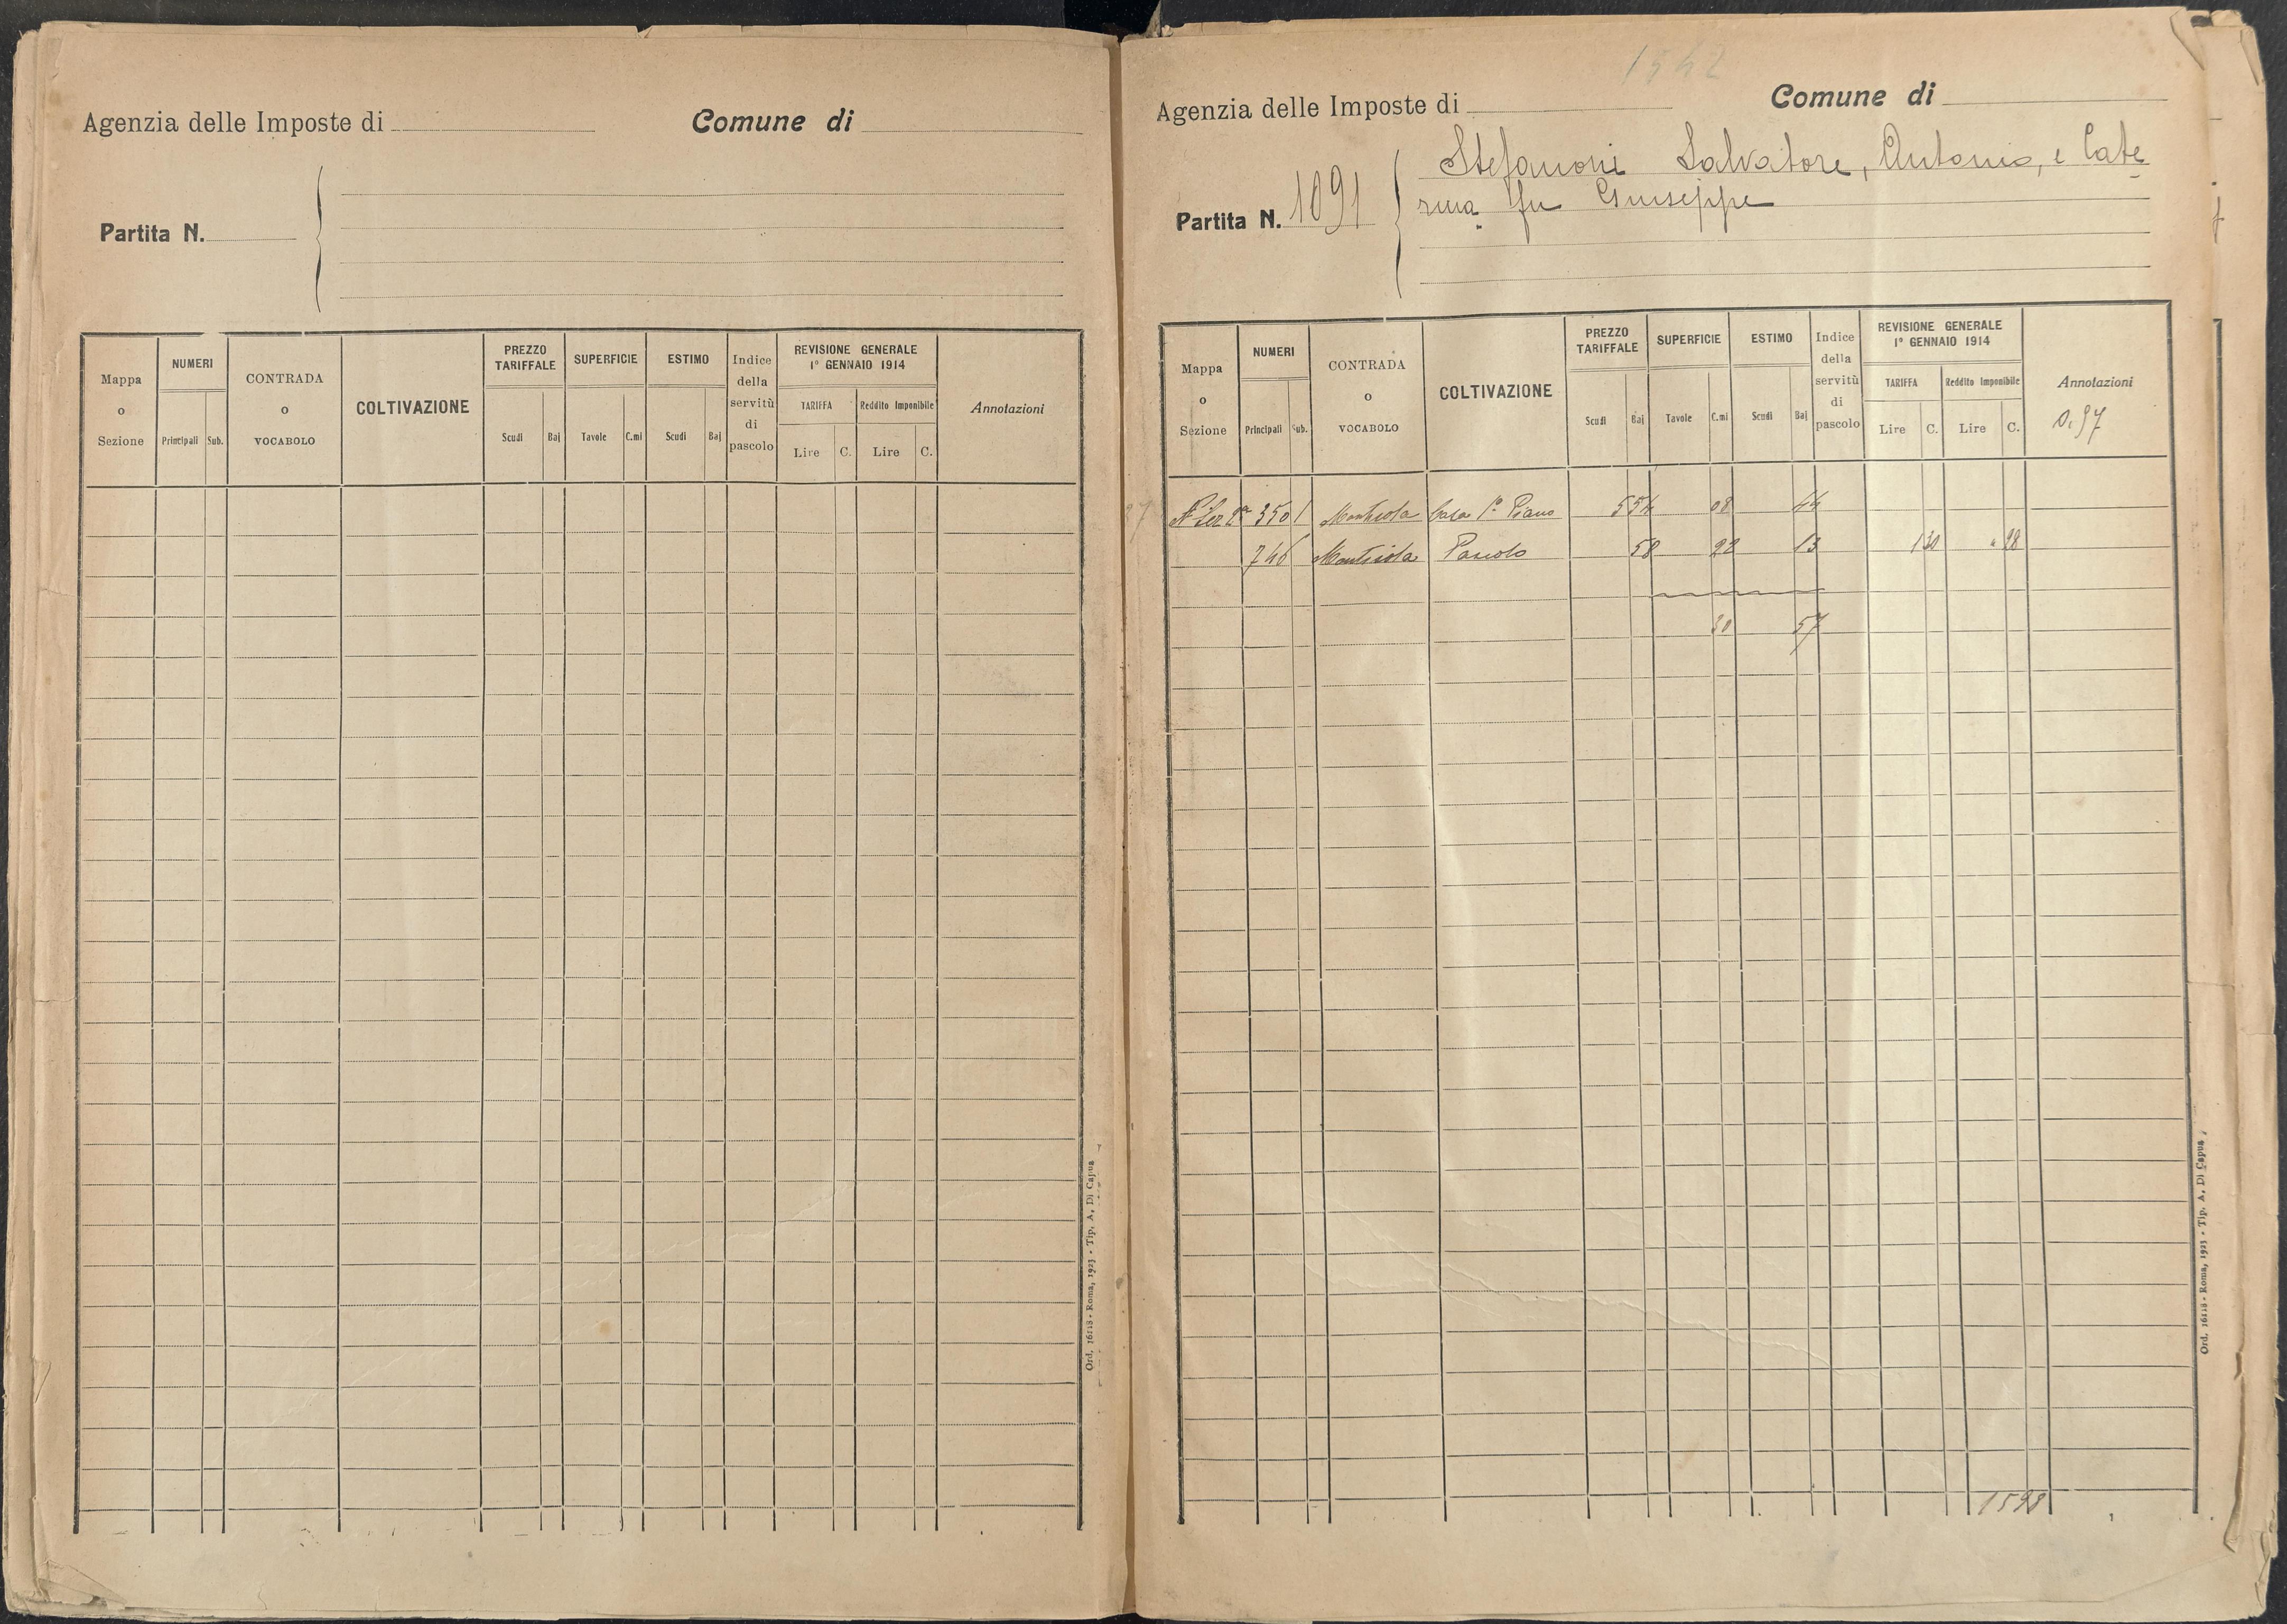 Agenzia delle Imposte di
Comune di
Partita N.
Mappa o Sezione
NUMERI
Principali
Sub.
CONTRADA o VOCABOLO
COLTIVAZIONE
PREZZO TARIFFALE
Scudi
Baj
SUPERFICIE
Tavole
C.mi
ESTIMO
Scudi
Baj
Indice della servitù di pascolo
REVISIONE GENERALE
1° GENNAIO 1914
TARIFFA
Reddito Imponibile
Lire
C.
Lire
C.
Annotazioni
Ord. 16118 - Roma, 1923 - Tip. A. Di Capua
1542
Agenzia delle Imposte di
Comune di
Partita N. 1091
Stefanoni Salvatore, Antonio, e Cate
rina fu Giuseppe
Mappa o Sezione
NUMERI
Principali
Sub.
CONTRADA o VOCABOLO
COLTIVAZIONE
PREZZO TARIFFALE
Scudi
Baj
SUPERFICIE
Tavole
C.mi
ESTIMO
Scudi
Baj
Indice della servitù di pascolo
REVISIONE GENERALE
1° GENNAIO 1914
TARIFFA
Reddito Imponibile
Lire
C.
Lire
C.
Annotazioni
0.97
350 1 Casa 1° Piano 554 08 44
746 Pascolo 58 22 13 130 " 28
30 57
1598
Ord. 16118 - Roma, 1923 - Tip. A. Di Capua